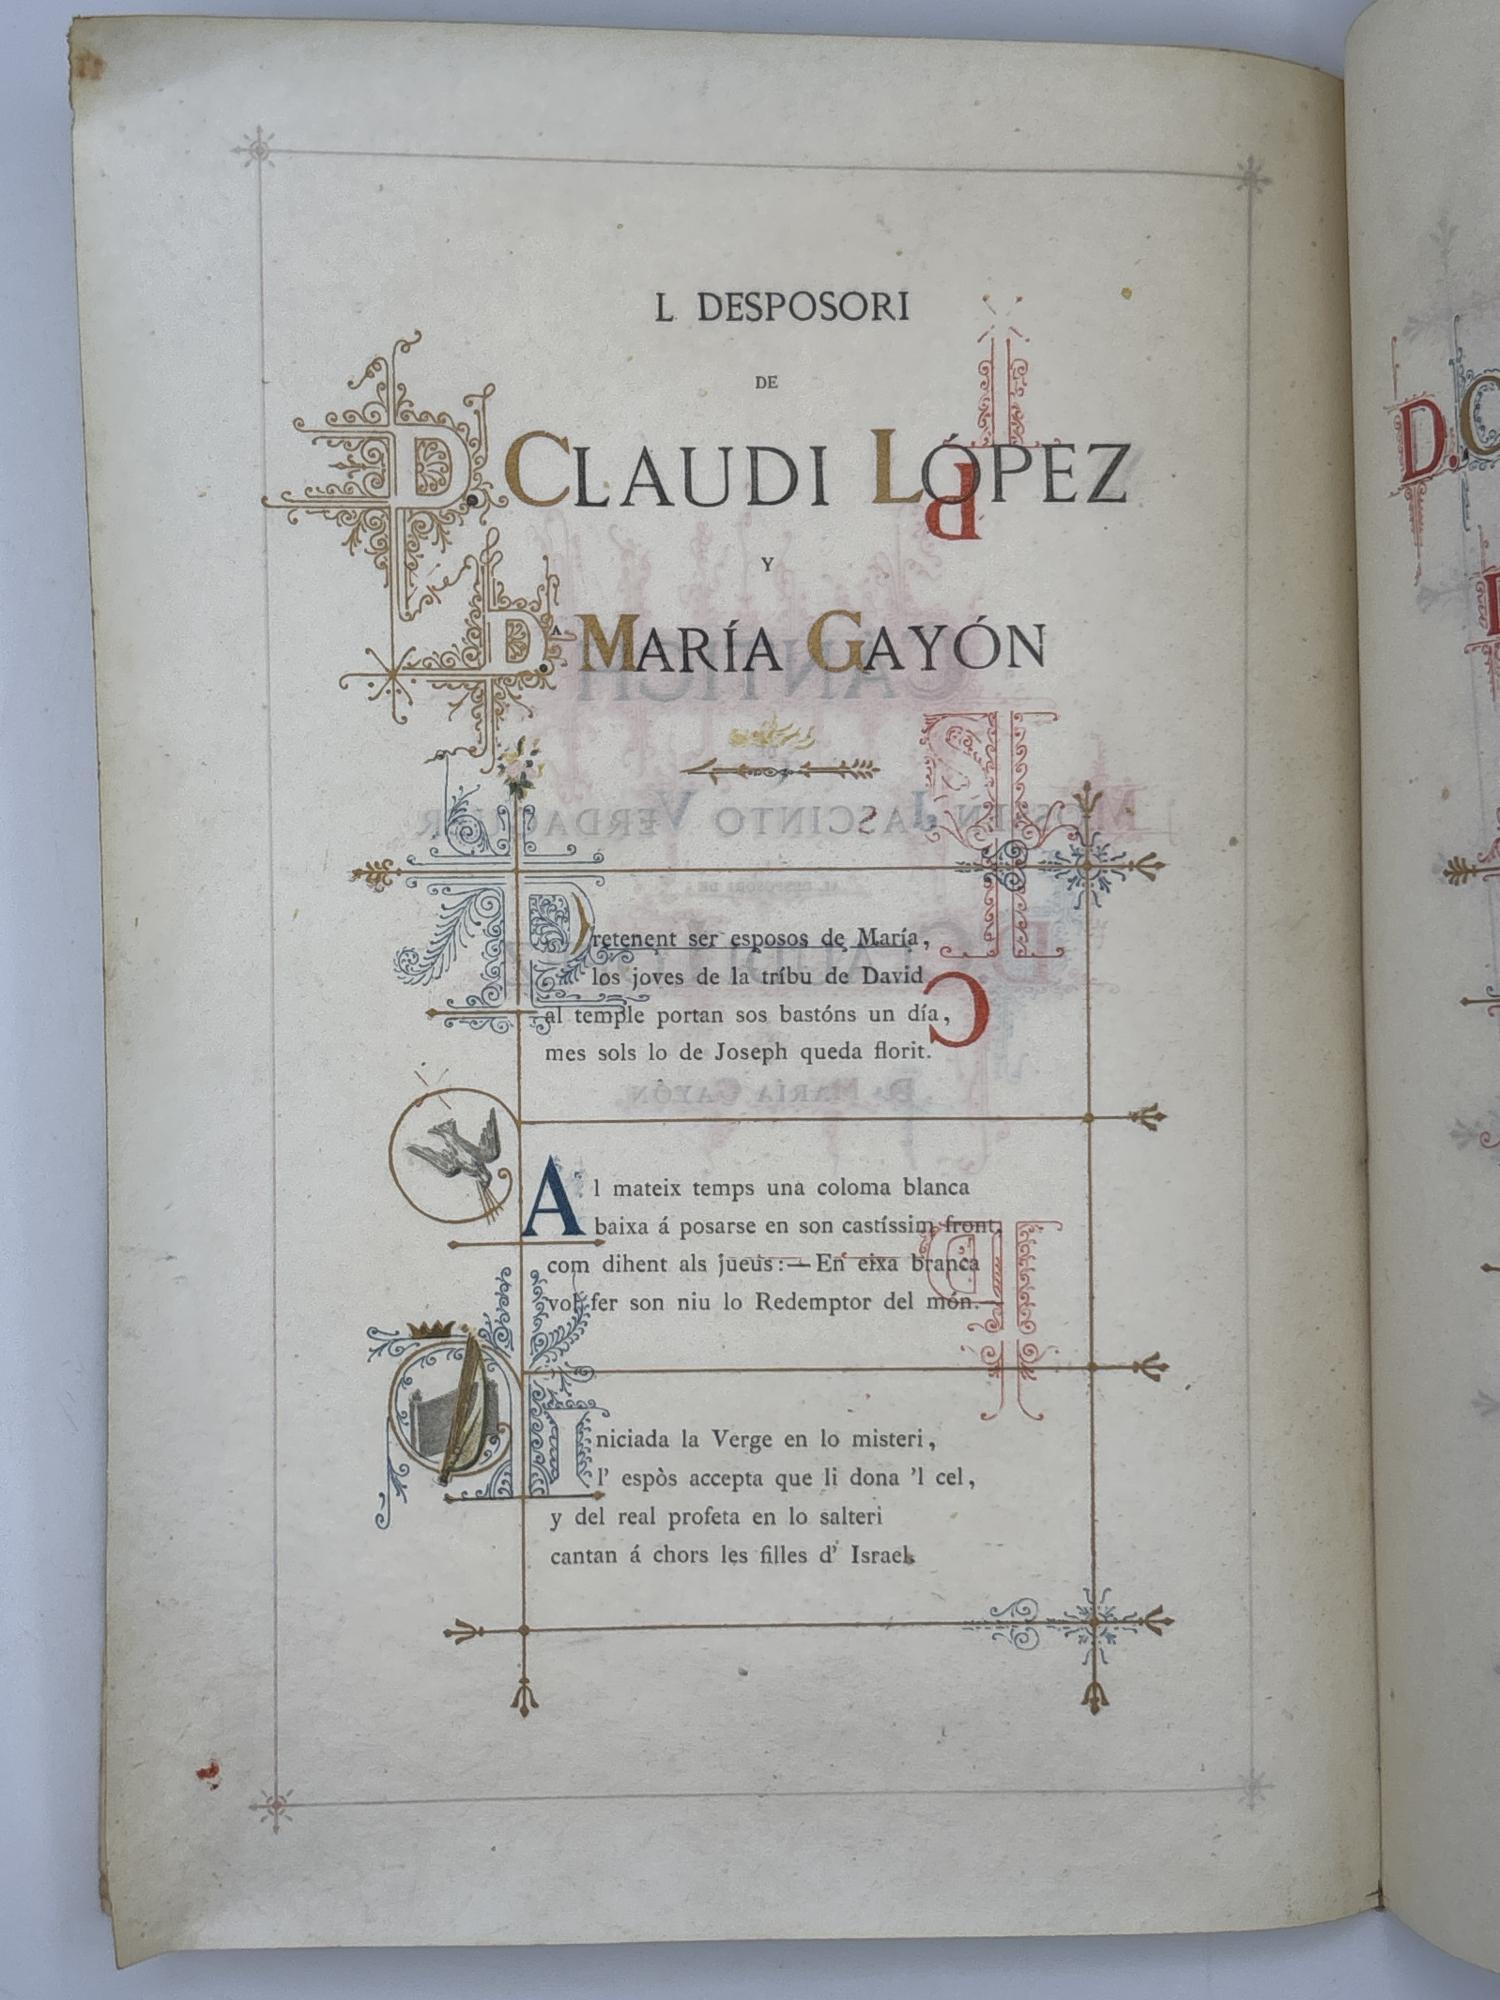 L DESPOSORI
DE
D. CLAUDI LÓPEZ
Y
D.ª MARÍA GAYÓN
Pretenent ser esposos de María,
los joves de la tríbu de David
al temple portan sos bastóns un día,
mes sols lo de Joseph queda florit.
Al mateix temps una coloma blanca
baixa á posarse en son castíssim front,
com dihent als jueus:—En eixa branca
vol fer son niu lo Redemptor del món.—
Iniciada la Verge en lo misteri,
l' espòs accepta que li dona 'l cel,
y del real profeta en lo salteri
cantan á chors les filles d' Israel.
D. C